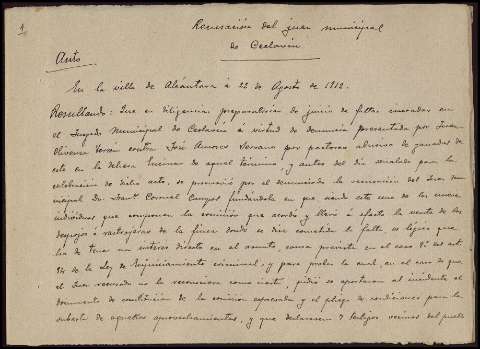 Recusación del juez municipal
de Ceclavín
Auto
En la villa de Alcántara á 22 de Agosto de 1912.
Resultando: Que en diligencias preparatorias de juicio de faltas incoadas en
el Juzgado Municipal de Ceclavín á virtud de denuncia presentada por Juan
contra José Amores Serrano por pastoreo abusivo de ganados de
este en la dehesa Encima de aquel término, y antes del día señalado para la
celebración de dicho acto, se promovió por el denunciado la recusación del Juez mu-
nicipal Dn. Coronel Campos fundándola en que siendo este uno de los nueve
individuos que componen la comisión que acordó y llevó á efecto la venta de los
despojos ó rastrojeras de la finca donde se dice cometida la falta, es lógico que
ha de tener un interés directo en el asunto, como previsto en el caso 9º del art.
54 de la Ley de Enjuiciamiento criminal, y para probar la cual, en el caso de que
el Juez recusado no la reconociera como cierta, pidió se aportaran al incidente el
documento de constitución de la comisión expresada y el pliego de condiciones para la
subasta de aquellos aprovechamientos, y que declarasen 7 testigos vecinos del pueblo